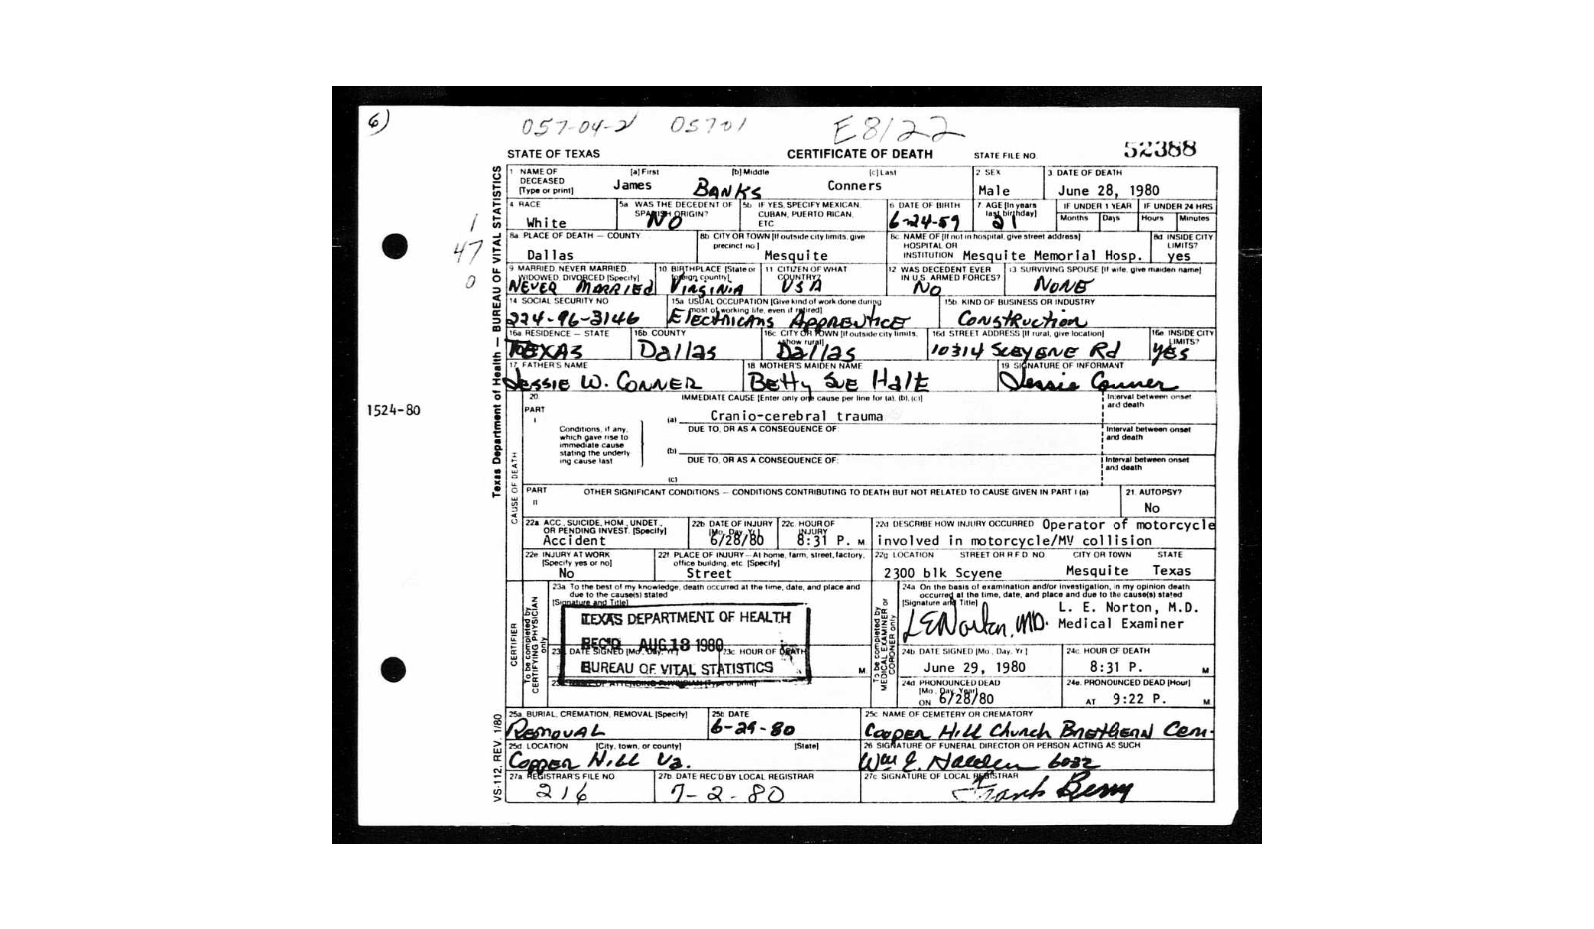 6)
057-04-2 05701 E8122
STATE OF TEXAS CERTIFICATE OF DEATH STATE FILE NO. 52388
Texas Department of Health — BUREAU OF VITAL STATISTICS
1
47
0
1524-80
VS-112, REV. 1/80
1 NAME OF DECEASED [Type or print] [a] First [b] Middle [c] Last 2 SEX 3 DATE OF DEATH
James BANKS Conners Male June 28, 1980
4 RACE 5a WAS THE DECEDENT OF SPANISH ORIGIN? 5b IF YES, SPECIFY MEXICAN, CUBAN, PUERTO RICAN, ETC 6 DATE OF BIRTH 7 AGE [In years last birthday] IF UNDER 1 YEAR IF UNDER 24 HRS
Months Days Hours Minutes
White NO 6-24-59 21
8a PLACE OF DEATH — COUNTY 8b CITY OR TOWN [If outside city limits, give precinct no] 8c NAME OF [If not in hospital, give street address] HOSPITAL OR INSTITUTION 8d INSIDE CITY LIMITS?
Dallas Mesquite Mesquite Memorial Hosp. yes
9 MARRIED, NEVER MARRIED, WIDOWED, DIVORCED [Specify] 10 BIRTHPLACE [State or foreign country] 11 CITIZEN OF WHAT COUNTRY? 12 WAS DECEDENT EVER IN U.S. ARMED FORCES? 13 SURVIVING SPOUSE [If wife, give maiden name]
NEVER MARRIED VIRGINIA USA NO NONE
14 SOCIAL SECURITY NO 15a USUAL OCCUPATION [Give kind of work done during most of working life, even if retired] 15b. KIND OF BUSINESS OR INDUSTRY
224-96-3146 Electricans Apprentice Construction
16a RESIDENCE - STATE 16b COUNTY 16c CITY OR TOWN [If outside city limits, show rural] 16d STREET ADDRESS [If rural, give location] 16e INSIDE CITY LIMITS?
TEXAS Dallas Dallas 10314 SCEYENE Rd YES
17 FATHER'S NAME 18 MOTHER'S MAIDEN NAME 19 SIGNATURE OF INFORMANT
JESSIE W. CONNER BETTY SUE HALE Jessie Conner
CAUSE OF DEATH
20. IMMEDIATE CAUSE [Enter only one cause per line for (a), (b), (c)] Interval between onset and death
PART I (a) Cranio-cerebral trauma
Conditions, if any, which gave rise to immediate cause stating the underlying cause last
DUE TO, OR AS A CONSEQUENCE OF: Interval between onset and death
(b)
DUE TO, OR AS A CONSEQUENCE OF: Interval between onset and death
(c)
PART II OTHER SIGNIFICANT CONDITIONS — CONDITIONS CONTRIBUTING TO DEATH BUT NOT RELATED TO CAUSE GIVEN IN PART I (a) 21. AUTOPSY?
No
22a ACC, SUICIDE, HOM, UNDET., OR PENDING INVEST. [Specify] 22b DATE OF INJURY [Mo, Day, Yr] 22c. HOUR OF INJURY 22d DESCRIBE HOW INJURY OCCURRED Operator of motorcycle
Accident 6/28/80 8:31 P. M involved in motorcycle/MV collision
22e INJURY AT WORK [Specify yes or no] 22f. PLACE OF INJURY—At home, farm, street, factory, office building, etc [Specify] 22g LOCATION STREET OR R F D NO CITY OR TOWN STATE
No Street 2300 blk Scyene Mesquite Texas
CERTIFIER
To be completed by CERTIFYING PHYSICIAN only
23a To the best of my knowledge, death occurred at the time, date, and place and due to the cause(s) stated
[Signature and Title]
TEXAS DEPARTMENT OF HEALTH
REC'D AUG 18 1980
BUREAU OF VITAL STATISTICS
DATE SIGNED [Mo, Day, Yr] 23c HOUR OF DEATH M
NAME OF ATTENDING PHYSICIAN [Type or print]
To be completed by MEDICAL EXAMINER or CORONER only
24a On the basis of examination and/or investigation, in my opinion death occurred at the time, date, and place and due to the cause(s) stated
[Signature and Title] L. E. Norton, M.D.
LENorton, MD. Medical Examiner
24b DATE SIGNED [Mo, Day, Yr] 24c HOUR OF DEATH
June 29, 1980 8:31 P. M
24d PRONOUNCED DEAD [Mo, Day, Year] 24e. PRONOUNCED DEAD [Hour]
ON 6/28/80 AT 9:22 P. M
25a BURIAL, CREMATION, REMOVAL [Specify] 25b DATE 25c NAME OF CEMETERY OR CREMATORY
REMOVAL 6-29-80 Copper Hill Church Brethern Cem.
25d LOCATION [City, town, or county] [State] 26 SIGNATURE OF FUNERAL DIRECTOR OR PERSON ACTING AS SUCH
Copper Hill Va. Wm E. 6032
27a REGISTRAR'S FILE NO 27b. DATE REC'D BY LOCAL REGISTRAR 27c SIGNATURE OF LOCAL REGISTRAR
216 7-2-80 Frank Berry